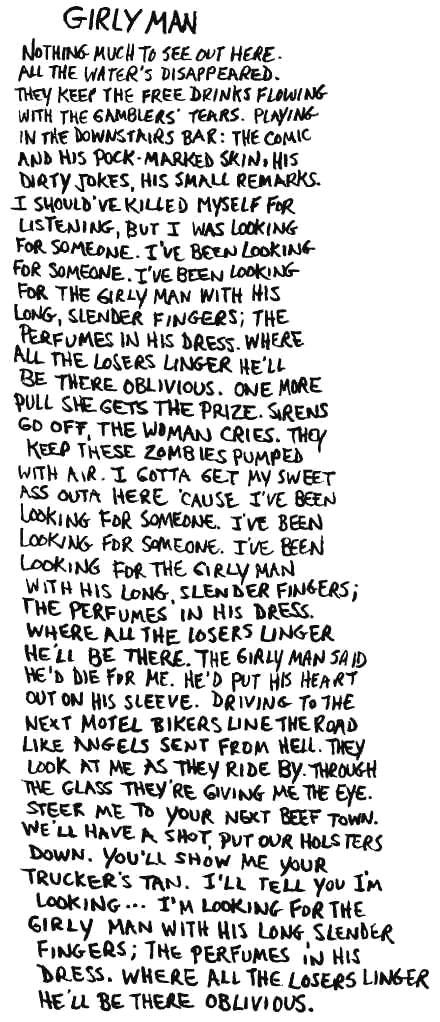 GIRLY MAN
NOTHING MUCH TO SEE OUT HERE.
ALL THE WATER'S DISAPPEARED.
THEY KEEP THE FREE DRINKS FLOWING
WITH THE GAMBLERS' TEARS. PLAYING
IN THE DOWNSTAIRS BAR: THE COMIC
AND HIS POCK-MARKED SKIN, HIS
DIRTY JOKES, HIS SMALL REMARKS.
I SHOULD'VE KILLED MYSELF FOR
LISTENING, BUT I WAS LOOKING
FOR SOMEONE. I'VE BEEN LOOKING
FOR SOMEONE. I'VE BEEN LOOKING
FOR THE GIRLY MAN WITH HIS
LONG, SLENDER FINGERS; THE
PERFUMES IN HIS DRESS. WHERE
ALL THE LOSERS LINGER HE'LL
BE THERE OBLIVIOUS. ONE MORE
PULL SHE GETS THE PRIZE. SIRENS
GO OFF, THE WOMAN CRIES. THEY
KEEP THESE ZOMBIES PUMPED
WITH AIR. I GOTTA GET MY SWEET
ASS OUTA HERE 'CAUSE I'VE BEEN
LOOKING FOR SOMEONE. I'VE BEEN
LOOKING FOR SOMEONE. I'VE BEEN
LOOKING FOR THE GIRLY MAN
WITH HIS LONG, SLENDER FINGERS;
THE PERFUMES IN HIS DRESS.
WHERE ALL THE LOSERS LINGER
HE'LL BE THERE. THE GIRLY MAN SAID
HE'D DIE FOR ME. HE'D PUT HIS HEART
OUT ON HIS SLEEVE. DRIVING TO THE
NEXT MOTEL BIKERS LINE THE ROAD
LIKE ANGELS SENT FROM HELL. THEY
LOOK AT ME AS THEY RIDE BY. THROUGH
THE GLASS THEY'RE GIVING ME THE EYE.
STEER ME TO YOUR NEXT BEEF TOWN.
WE'LL HAVE A SHOT, PUT OUR HOLSTERS
DOWN. YOU'LL SHOW ME YOUR
TRUCKER'S TAN. I'LL TELL YOU I'M
LOOKING... I'M LOOKING FOR THE
GIRLY MAN WITH HIS LONG SLENDER
FINGERS; THE PERFUMES IN HIS
DRESS. WHERE ALL THE LOSERS LINGER
HE'LL BE THERE OBLIVIOUS.